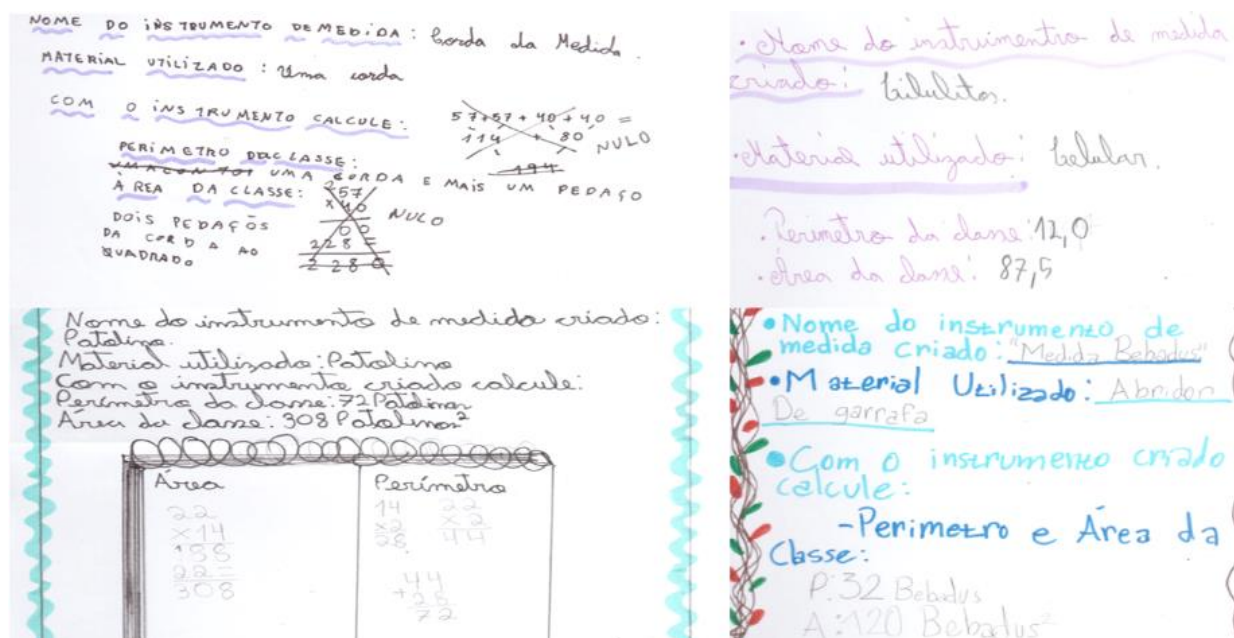 NOME DO INSTRUMENTO DE MEDIDA: Corda da Medida.
MATERIAL UTILIZADO: Uma corda
COM O INSTRUMENTO CALCULE:
57+57+40+40=
114 + 80
194
NULO
PERÍMETRO DA CLASSE:
UMA CORDA E MAIS UM PEDAÇO
ÁREA DA CLASSE:
57
×40
00
228=
2280
NULO
DOIS PEDAÇÕS
DA CORDA AO
QUADRADO
• Nome do instruimentro de medida
criado: Lilulitos.
• Material utilizado: Celular.
• Perimetro da classe: 12,0
• Área da classe: 87,5
Nome do instrumento de medida criado:
Patolino.
Material utilizado: Patolino
Com o instrumento criado calcule:
Perímetro da classe: 72 Patolinos
Área da classe: 308 Patolinos²
Área
22
×14
188
22=
308
Perímetro
14
×2
28
22
×2
44
44
+28
72
• Nome do instrumento de
medida criado: "Medida Bebadus"
• Material Utilizado: Abridor
De garrafa
• Com o instrumento criado
calcule:
-Perimetro e Área da
Classe:
P: 32 Bebadus
A: 120 Bebadus²